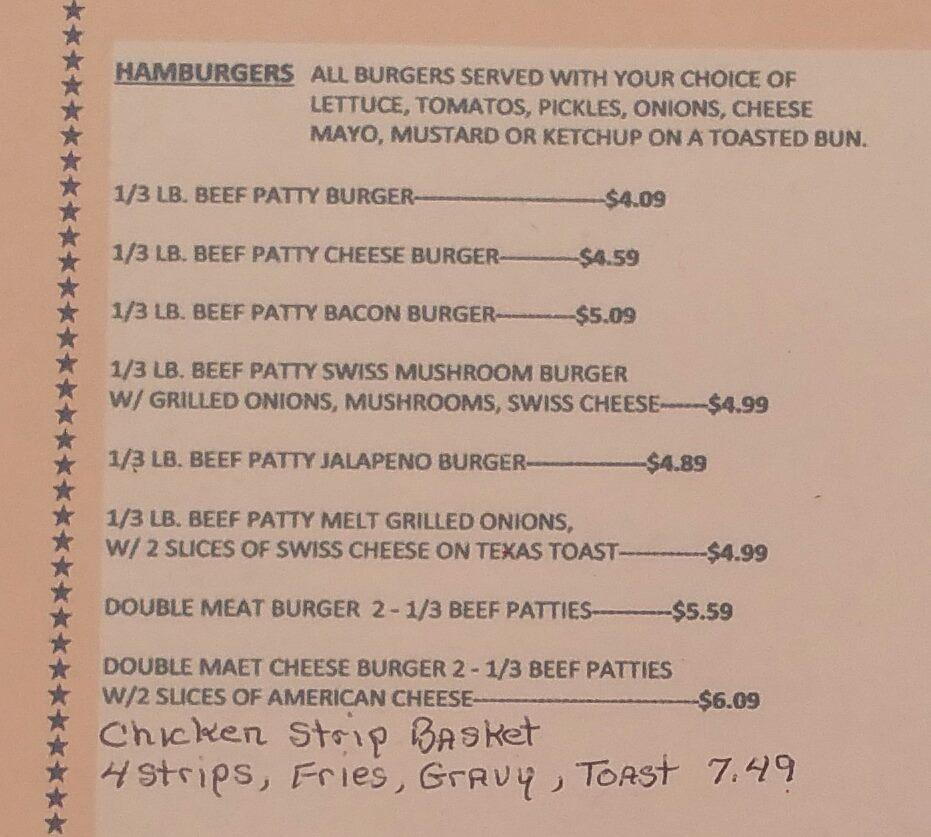 HAMBURGERS ALL BURGERS SERVED WITH YOUR CHOICE OF
LETTUCE, TOMATOS, PICKLES, ONIONS, CHEESE
MAYO, MUSTARD OR KETCHUP ON A TOASTED BUN.
1/3 LB. BEEF PATTY BURGER----------$4.09
1/3 LB. BEEF PATTY CHEESE BURGER----------$4.59
1/3 LB. BEEF PATTY BACON BURGER----------$5.09
1/3 LB. BEEF PATTY SWISS MUSHROOM BURGER
W/ GRILLED ONIONS, MUSHROOMS, SWISS CHEESE-----$4.99
1/3 LB. BEEF PATTY JALAPENO BURGER----------$4.89
1/3 LB. BEEF PATTY MELT GRILLED ONIONS,
W/ 2 SLICES OF SWISS CHEESE ON TEXAS TOAST----------$4.99
DOUBLE MEAT BURGER 2 - 1/3 BEEF PATTIES----------$5.59
DOUBLE MAET CHEESE BURGER 2 - 1/3 BEEF PATTIES
W/2 SLICES OF AMERICAN CHEESE----------$6.09
Chicken Strip Basket
4 strips, Fries, Gravy, Toast 7.49